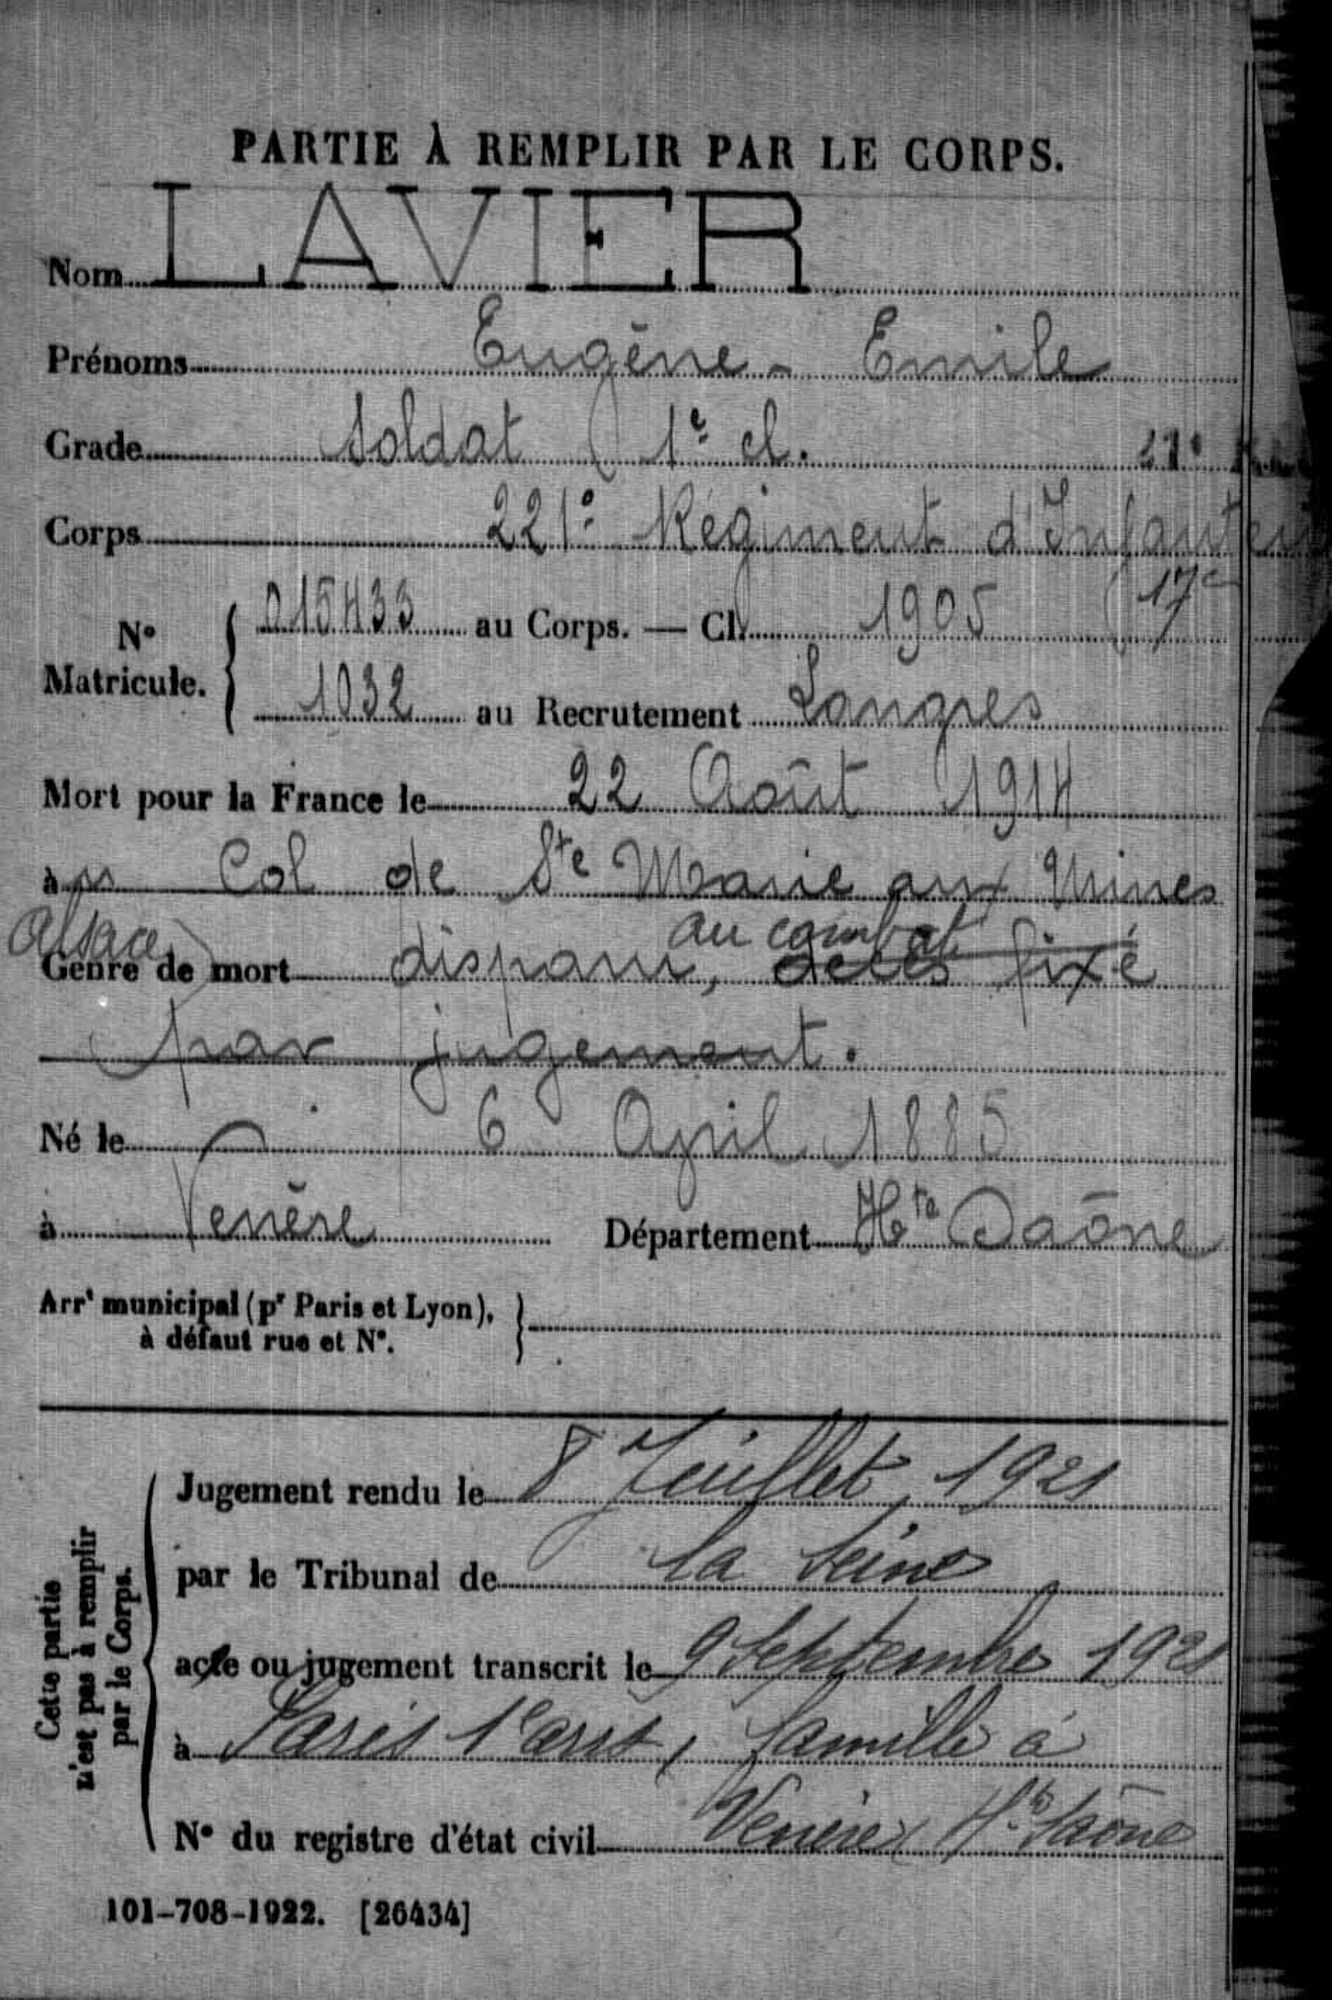 PARTIE À REMPLIR PAR LE CORPS.
Nom LAVIER
Prénoms Eugène - Emile
Grade Soldat 1e cl. 21e
Corps 221e Régiment d'Infanterie
(17e
N° Matricule. 015433 au Corps. — Cl. 1905
1032 au Recrutement Langres
Mort pour la France le 22 Août 1914
à u Col de Ste Marie aux Mines
Alsace)
au combat
Genre de mort disparu, décès fixé
par jugement.
Né le 6 Avril 1885
à Venère Département Hte Saône
Arrt municipal (pr Paris et Lyon),
à défaut rue et N°.
Cette partie
n'est pas à remplir
par le Corps.
Jugement rendu le 8 Juillet 1921
par le Tribunal de la Seine
acte ou jugement transcrit le 9 Septembre 1921
à Paris 1er arrt, famille à
Venère Hte Saône
N° du registre d'état civil
101-708-1922. [26434]